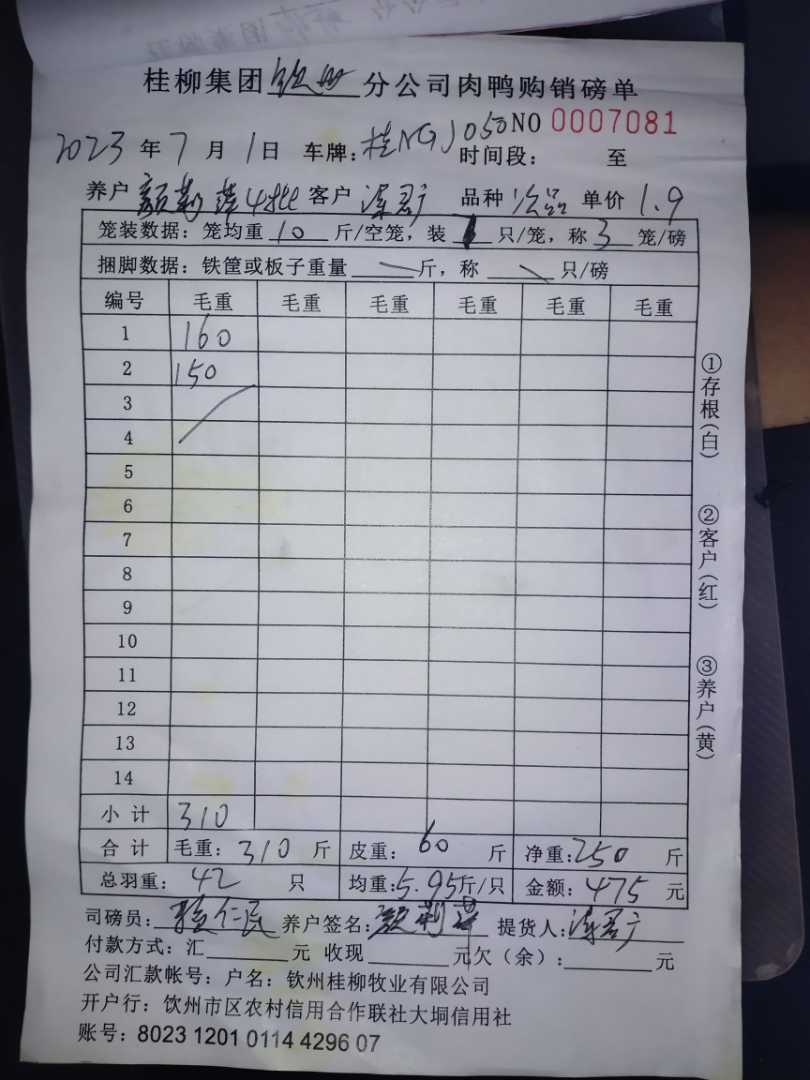 桂柳集团钦州分公司肉鸭购销磅单
2023年7月1日 车牌:桂NGJ050 NO 0007081
时间段: 至
养户 颜莉萍4批 客户 品种 次品 单价 1.9
笼装数据:笼均重10斤/空笼,装 只/笼,称3笼/磅
捆脚数据:铁筐或板子重量 斤,称 只/磅
编号 毛重 毛重 毛重 毛重 毛重 毛重
1 160
2 150
3
4
5
6
7
8
9
10
11
12
13
14
小计 310
合计 毛重:310斤 皮重:60斤 净重:250斤
总羽重:42只 均重:5.95斤/只 金额:475元
司磅员: 仁民 养户签名:颜莉萍 提货人:
付款方式:汇 元 收现 元欠(余): 元
公司汇款帐号:户名:钦州桂柳牧业有限公司
开户行:钦州市区农村信用合作联社大垌信用社
账号:8023 1201 0114 4296 07
①存根(白)
②客户(红)
③养户(黄)